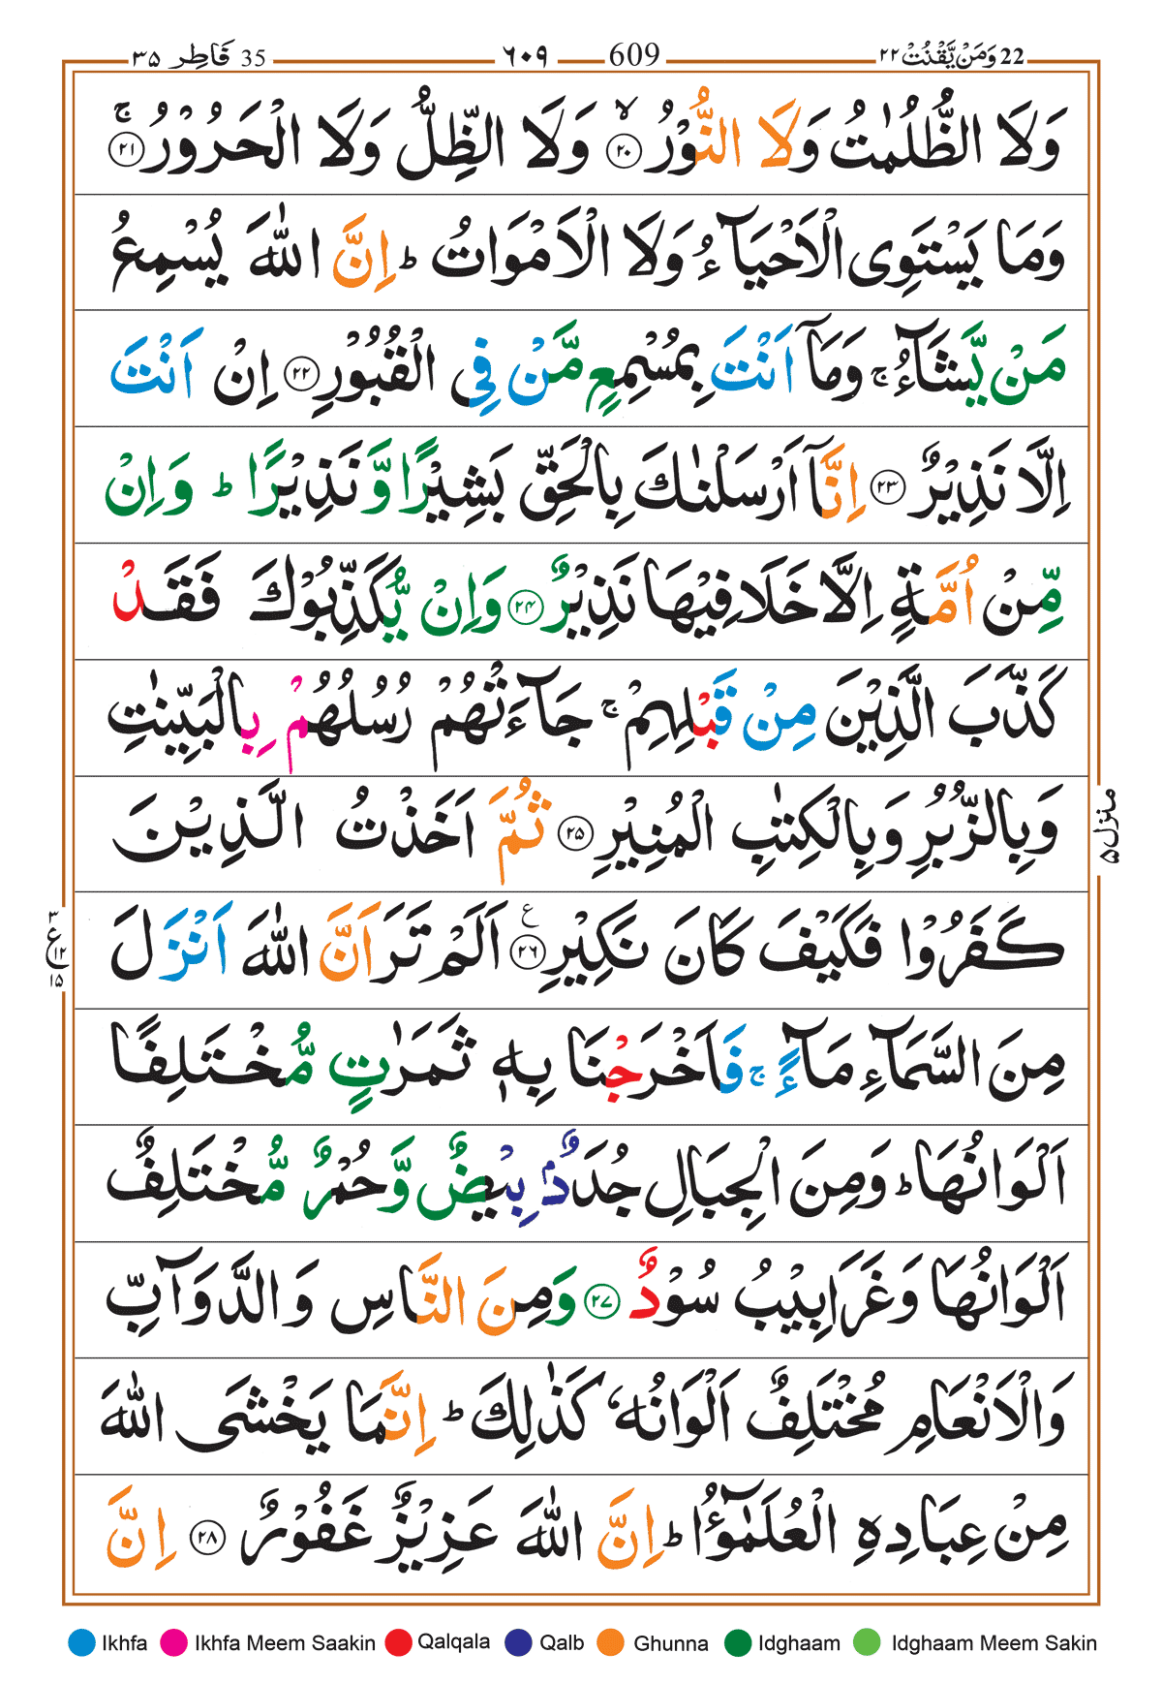 35 فَاطِر ۳۵
٦٠٩ 609
22 وَمَنْ يَّقْنُتْ ۲۲
وَلَا الظُّلُمٰتُ وَلَا النُّوْرُ ﴿۲۰﴾ۙ وَلَا الظِّلُّ وَلَا الْحَرُوْرُ ﴿۲۱﴾ۚ
وَمَا يَسْتَوِى الْاَحْيَآءُ وَلَا الْاَمْوَاتُ ؕ اِنَّ اللّٰهَ يُسْمِعُ
مَنْ يَّشَآءُ ۚ وَمَاۤ اَنْتَ بِمُسْمِعٍ مَّنْ فِى الْقُبُوْرِ ﴿۲۲﴾ اِنْ اَنْتَ
اِلَّا نَذِيْرٌ ﴿۲۳﴾ اِنَّاۤ اَرْسَلْنٰكَ بِالْحَقِّ بَشِيْرًا وَّنَذِيْرًا ؕ وَاِنْ
مِّنْ اُمَّةٍ اِلَّا خَلَا فِيْهَا نَذِيْرٌ ﴿۲۴﴾ وَاِنْ يُّكَذِّبُوْكَ فَقَدْ
كَذَّبَ الَّذِيْنَ مِنْ قَبْلِهِمْ ۚ جَآءَتْهُمْ رُسُلُهُمْ بِالْبَيِّنٰتِ
وَبِالزُّبُرِ وَبِالْكِتٰبِ الْمُنِيْرِ ﴿۲۵﴾ ثُمَّ اَخَذْتُ الَّذِيْنَ
كَفَرُوْا فَكَيْفَ كَانَ نَكِيْرِ ﴿۲۶﴾ ع اَلَمْ تَرَ اَنَّ اللّٰهَ اَنْزَلَ
مِنَ السَّمَآءِ مَآءً ۚ فَاَخْرَجْنَا بِهٖ ثَمَرٰتٍ مُّخْتَلِفًا
اَلْوَانُهَا ؕ وَمِنَ الْجِبَالِ جُدَدٌۢ بِيْضٌ وَّحُمْرٌ مُّخْتَلِفٌ
اَلْوَانُهَا وَغَرَابِيْبُ سُوْدٌ ﴿۲۷﴾ وَمِنَ النَّاسِ وَالدَّوَآبِّ
وَالْاَنْعَامِ مُخْتَلِفٌ اَلْوَانُهٗ كَذٰلِكَ ؕ اِنَّمَا يَخْشَى اللّٰهَ
مِنْ عِبَادِهِ الْعُلَمٰٓؤُا ؕ اِنَّ اللّٰهَ عَزِيْزٌ غَفُوْرٌ ﴿۲۸﴾ اِنَّ
منزل ۵
۳
ع
۱۲
۱۵
Ikhfa Ikhfa Meem Saakin Qalqala Qalb Ghunna Idghaam Idghaam Meem Sakin